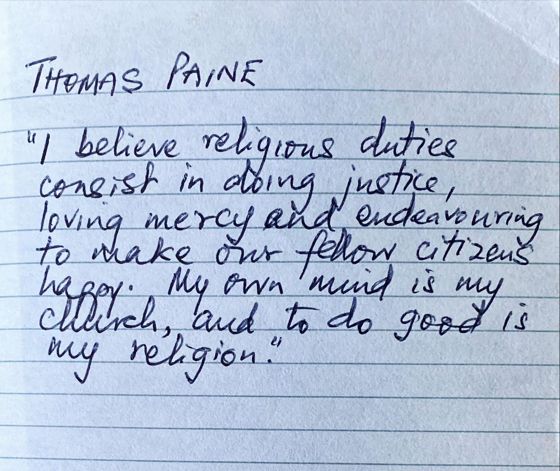 THOMAS PAINE
"I believe religious duties
consist in doing justice,
loving mercy and endeavouring
to make our fellow citizens
happy. My own mind is my
church, and to do good is
my religion."